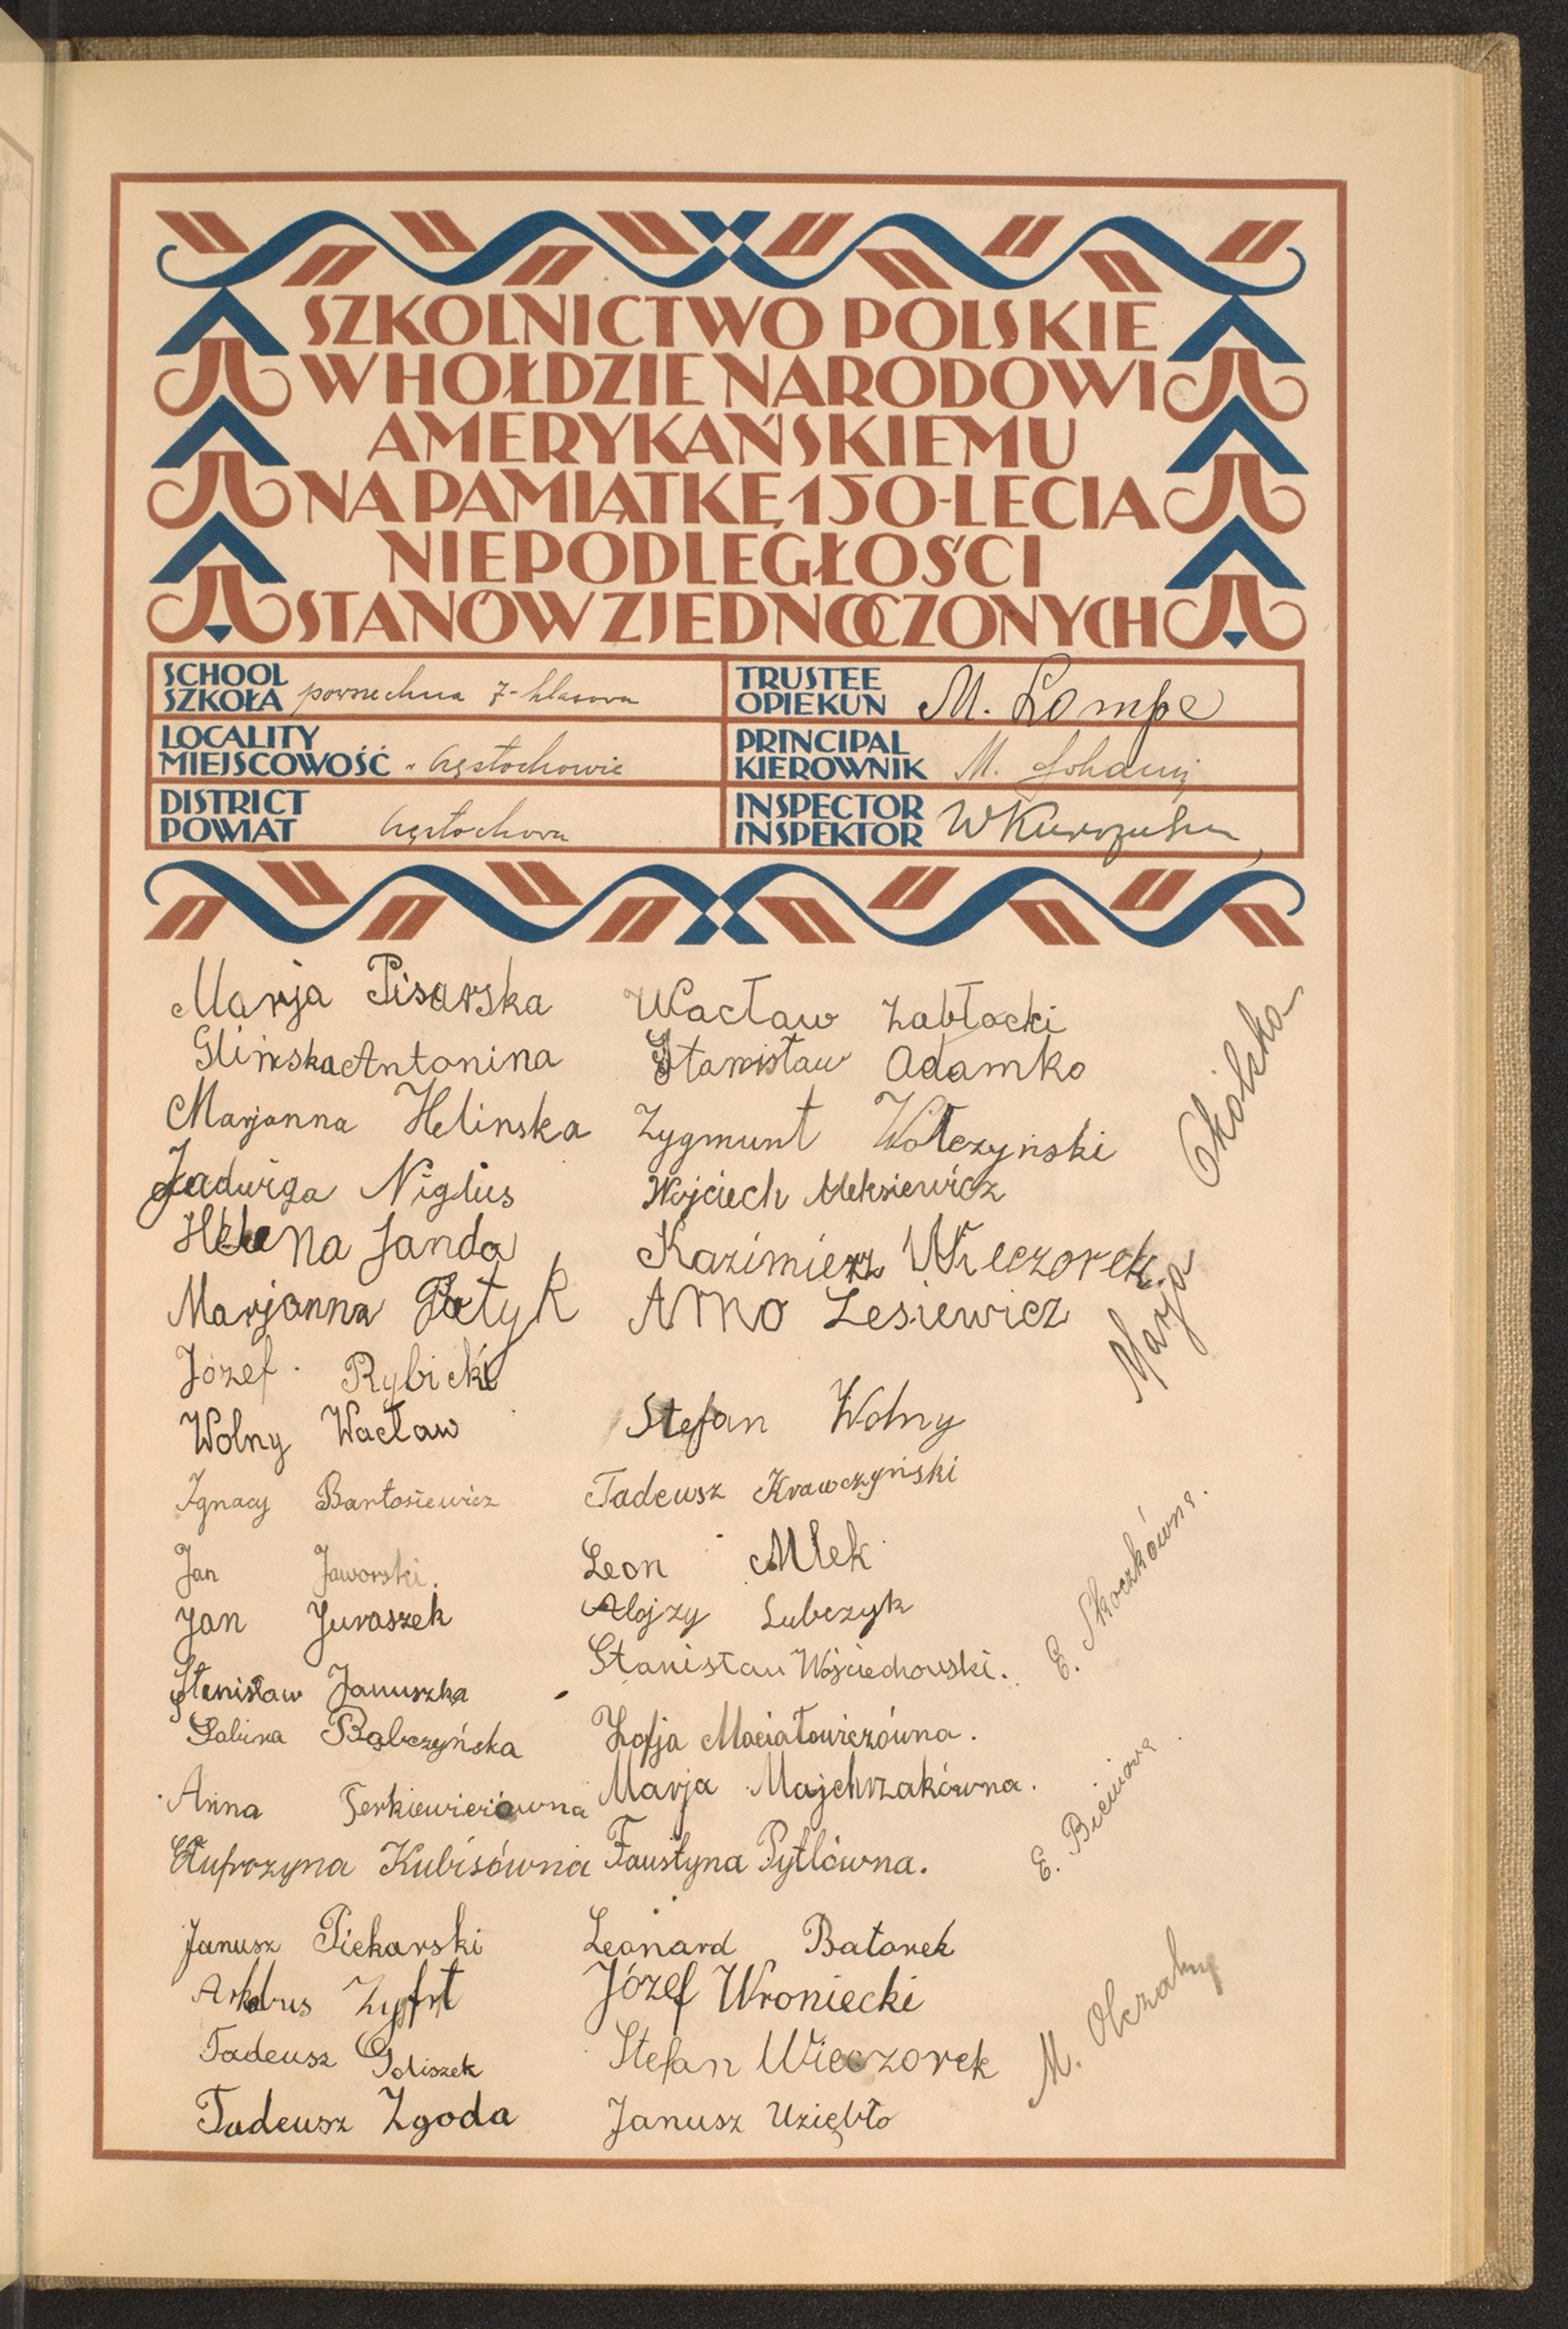 SZKOLNICTWO POLSKIE
W HOŁDZIE NARODOWI
AMERYKAŃSKIEMU
NA PAMIĄTKĘ 150-LECIA
NIEPODLEGŁOŚCI
STANÓW ZJEDNOCZONYCH
SCHOOL
SZKOŁA powszechna 7-klasowa
LOCALITY
MIEJSCOWOŚĆ w Częstochowie
DISTRICT
POWIAT Częstochowa
TRUSTEE
OPIEKUN M. Lompe
PRINCIPAL
KIEROWNIK M.
INSPECTOR
INSPEKTOR W
Marja Pisarska
Glińska Antonina
Marjanna Helinska
Jadwiga Niglus
Helena Janda
Marjanna Patyk
Józef Rybicki
Wolny Wacław
Ignacy Bartosiewicz
Jan Jaworski.
Jan Juraszek
Stanisław Januszka
Sabina Bąbczyńska
Anna Terkiewiczówna
Eufrozyna Kubisówna
Janusz Piekarski
Zyfrt
Tadeusz Goliszek
Tadeusz Zgoda
Wacław Zabłocki
Stanisław Adamko
Zygmunt Wołczyński
Wojciech Aleksiewicz
Kazimierz Wieczorek
Arno Lesiewicz
Stefan Wolny
Tadeusz Krawczyński
Leon Mlek
Alojzy Lubczyk
Stanisław Wojciechowski.
Zofja Maciałowiczówna.
Marja Majchrzakówna.
Faustyna Pytlówna.
Leonard Batorek
Józef Wroniecki
Stefan Wieczorek
Janusz Uziębło
Marja
E. Skoczkówna.
E.
M.